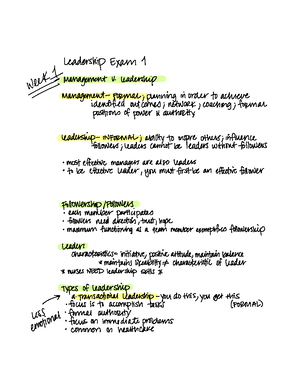 Leadership Exam 1
Week 1
Management v. Leadership
Management - FORMAL; planning in order to achieve
identified outcomes; network, coaching, formal
positions of power & authority
Leadership - INFORMAL; ability to inspire others; influence
followers; leaders cannot be leaders without followers
• most effective managers are also leaders
• to be effective leader, you must first be an effective follower
Followership/Followers
• each member participates
• followers need direction, trust, hope
• maximum functioning as a team member exemplifies followership
Leaders
characteristics = initiative, positive attitude, maintain balance
* maintains flexibility ≠ characteristic of leader
* nurses NEED leadership skills *
Types of leadership
* a Transactional Leadership - you do this, you get this
• focus is to accomplish tasks (FORMAL)
• formal authority
• focus on immediate problems
• common in healthcare
Less
emotional